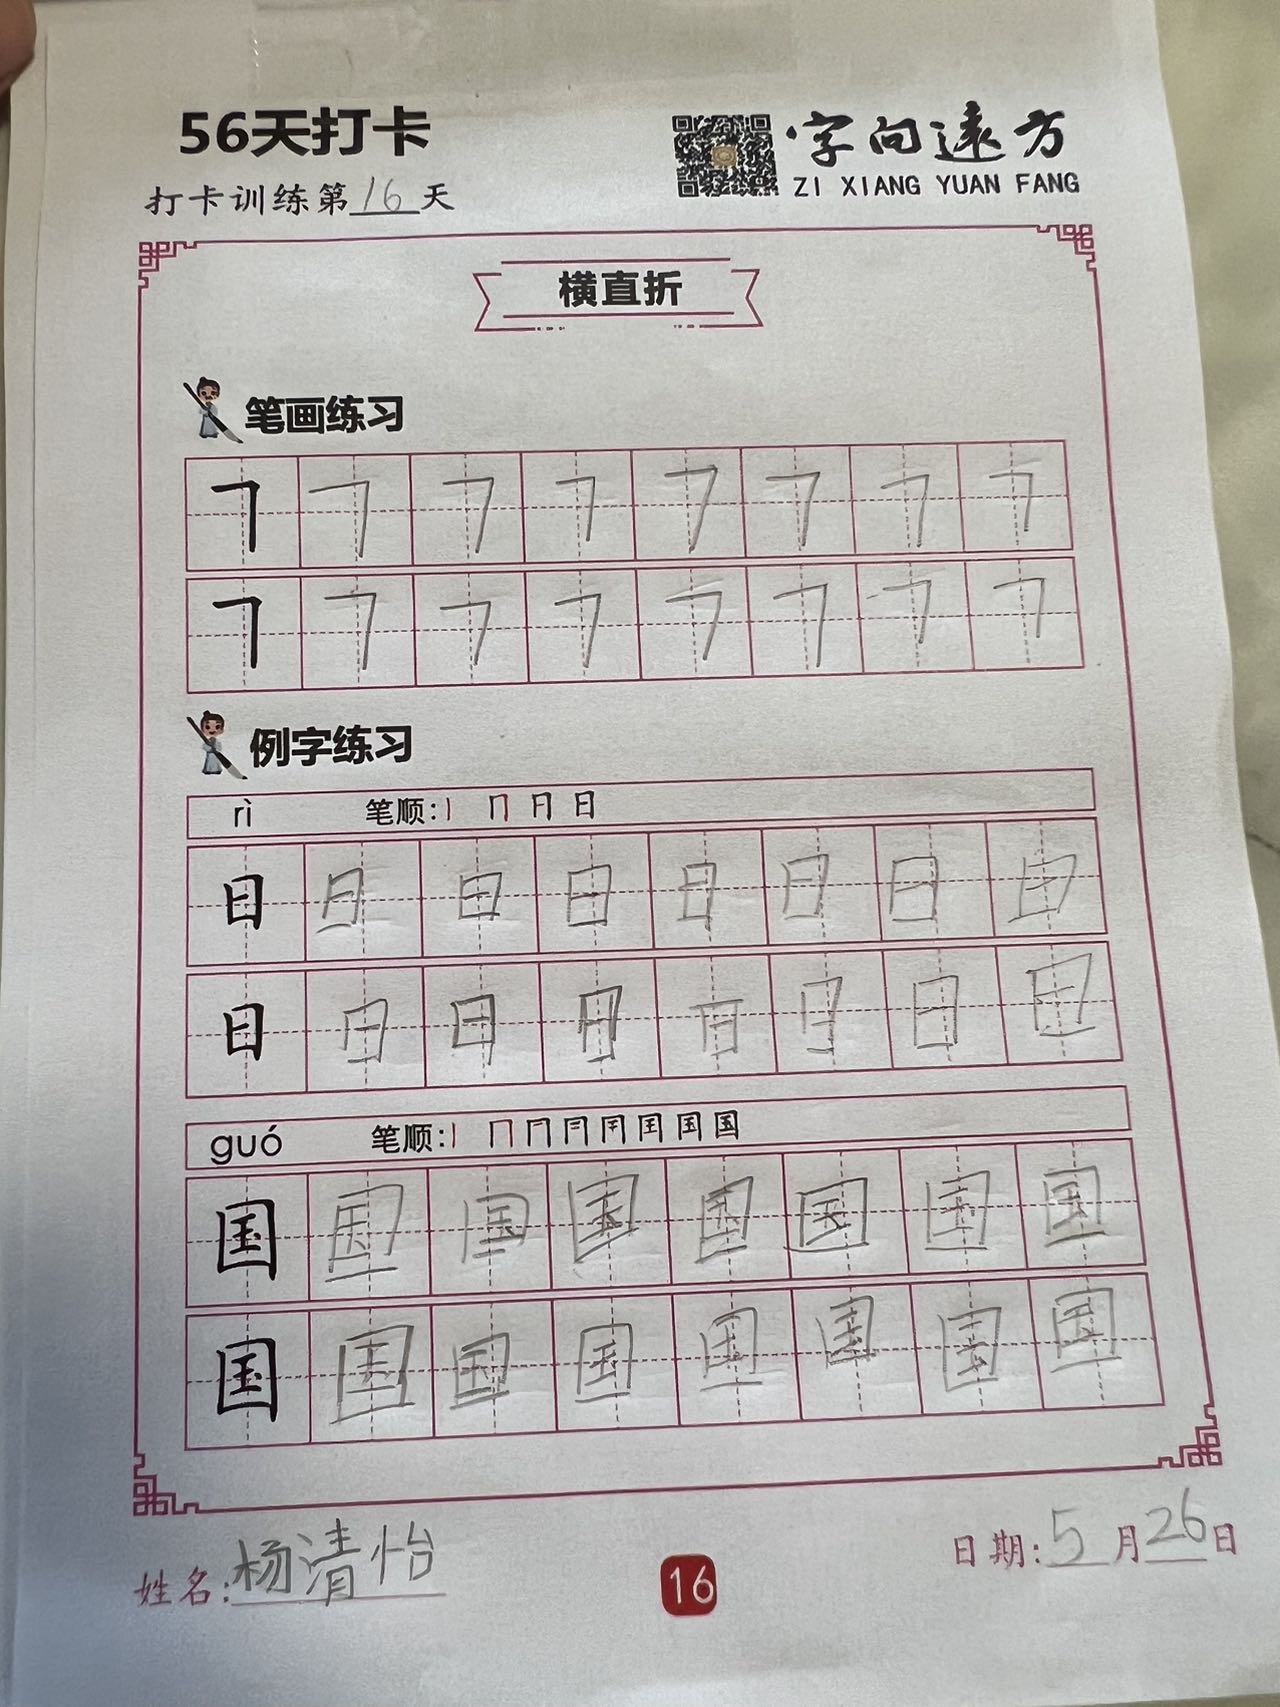 56天打卡
字向遠方
ZI XIANG YUAN FANG
打卡训练第16天
横直折
笔画练习
例字练习
rì 笔顺: 丨 冂 日 日
日 日 日 日 日 日 日 日
日 日 日 日 日 日 日 日
guó 笔顺: 丨 冂 国
国 国 国 国 国 国 国 国
国 国 国 国 国 国 国 国
姓名: 杨清怡
16
日期: 5月26日